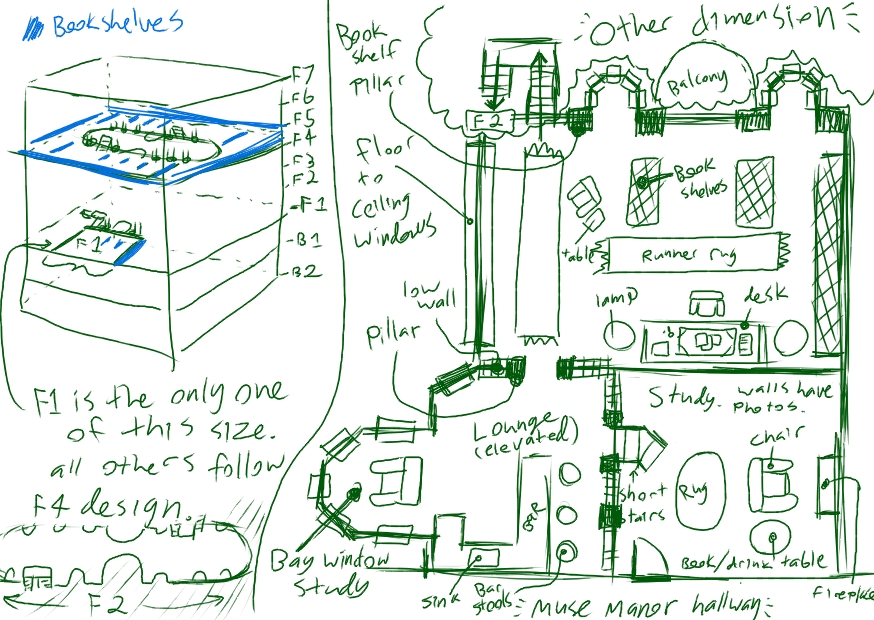 Bookshelves
F7
F6
F5
F4
F3
F2
F1
B1
B2
F1
F1 is the only one
of this size.
all others follow
F4 design.
F2
Other dimension
Book
shelf
pillar
F2
Balcony
floor
to
ceiling
windows
Book
shelves
table
Runner rug
low
wall
lamp
desk
pillar
Study. walls have
photos.
Lounge
(elevated)
chair
short
stairs
Rug
Bar
Bay window
Study
sink
Bar
stools
Book/drink table
fireplace
Muse Manor hallway